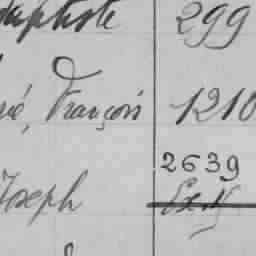 Baptiste 299
ré, François 1210
2639
Joseph